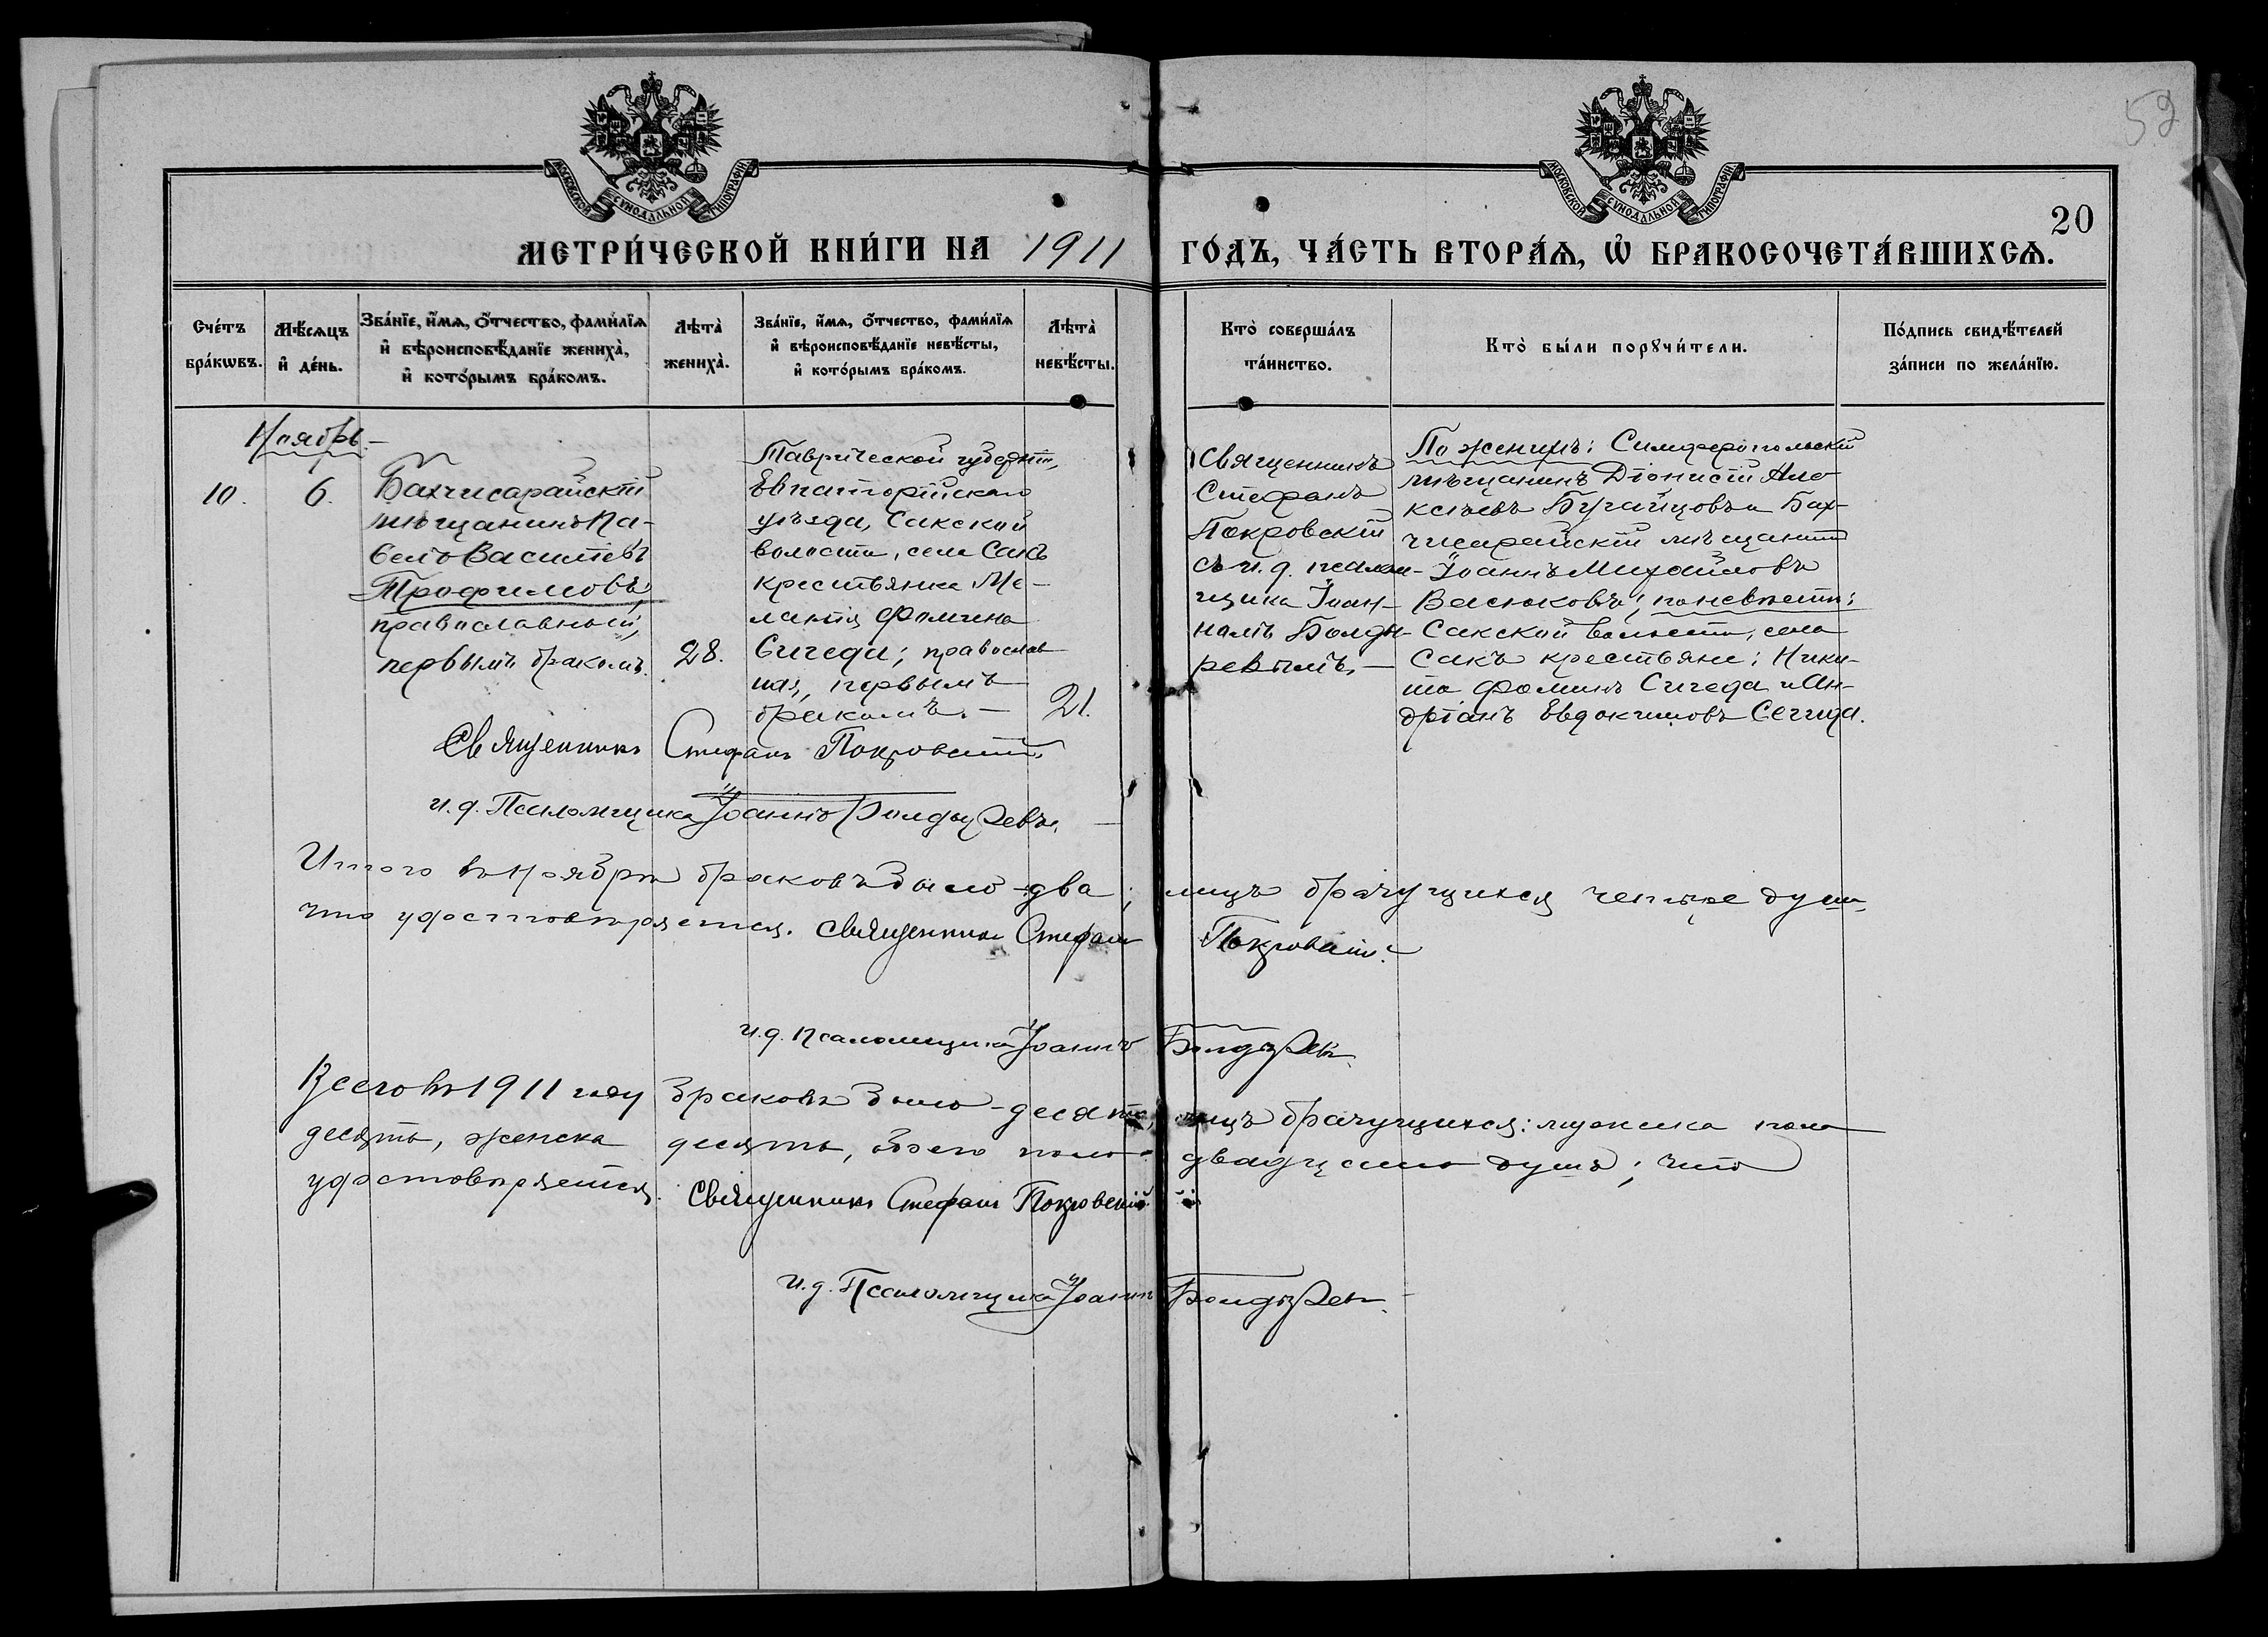 59
МОСКОВСКОЙ СѴНОДАЛЬНОЙ ТИПОГРАФІИ
МОСКОВСКОЙ СѴНОДАЛЬНОЙ ТИПОГРАФІИ
20
МЕТРИ́ЧЕСКОЙ КНИ́ГИ НА 1911 ГО́ДЪ, ЧА́СТЬ ВТОРА́Ѧ, Ѡ҆ БРАКОСОЧЕТА́ВШИХСѦ.
Сче́тъ
бра́кѡвъ.
Мѣ́сяцъ
и҆ де́нь.
Зва́нїе, и҆́мѧ, ѻ҆́тчество, фами́лїѧ
и҆ вѣроисповѣ́данїе жениха̀,
и҆ кото́рымъ бра́комъ.
Лѣта̀
жениха̀.
Зва́нїе, и҆́мѧ, ѻ҆́тчество, фами́лїѧ
и҆ вѣроисповѣ́данїе невѣ́сты,
и҆ кото́рымъ бра́комъ.
Лѣта̀
невѣ́сты.
Кто̀ соверша́лъ
та́инство.
Кто̀ бы́ли порꙋчи́тели.
По́дпись свидѣ́телей
за́писи по жела́нїю.
Ноябрь.
10.
6.
Бахчисарайскій
мѣщанинъ Па-
велъ Василіевъ
Трофимовъ,
православный,
первымъ бракомъ.
28.
Таврической губерніи,
Евпаторійскаго
уѣзда, Сакской
волости, села Сакъ
крестьянка Ме-
ланія Фомина
Сигеда; православ-
ная, первымъ
бракомъ.
21.
Священникъ
Стефанъ
Покровскій
съ и. д. псалом-
щика Іоан-
номъ Болды-
ревымъ.
По женихѣ: Симферопольскій
мѣщанинъ Діонисій Але-
ксѣевъ Бугайцовъ и Бах-
чисарайскій мѣщанинъ
Іоаннъ Михайловъ
Васюковъ; по невѣстѣ:
Сакской волости, села
Сакъ крестьяне: Ники-
та Фоминъ Сигеда и Ан-
дріанъ Евдокимовъ Сегида.
Священникъ Стефанъ Покровскій.
и. д. Псаломщика Іоаннъ Болдыревъ.
Итого въ Ноябрѣ браковъ было - два; лицъ брачущихся четыре души,
что удостовѣряется. Священникъ Стефанъ Покровскій.
и. д. псаломщика Іоаннъ Болдыревъ.
Всего въ 1911 году браковъ было - десять, лицъ брачущихся: мужска пола
десять, женска десять, обоего пола - двадцать душъ; что
удостовѣряется. Священникъ Стефанъ Покровскій
и. д. Псаломщика Іоаннъ Болдыревъ.